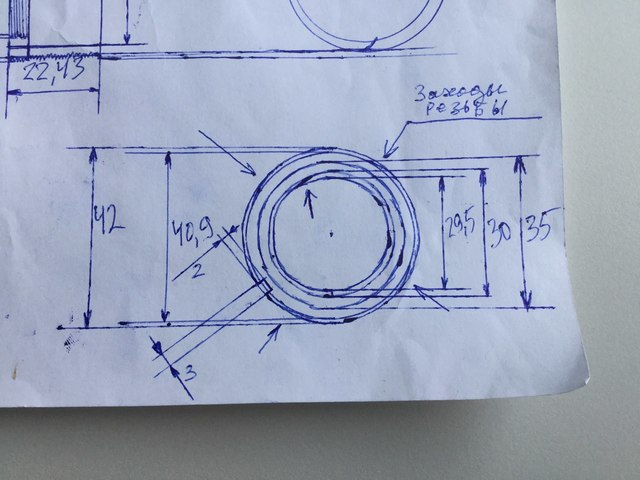 22,43
Заходы
резьбы
42
40,9
2
3
29,5
30
35